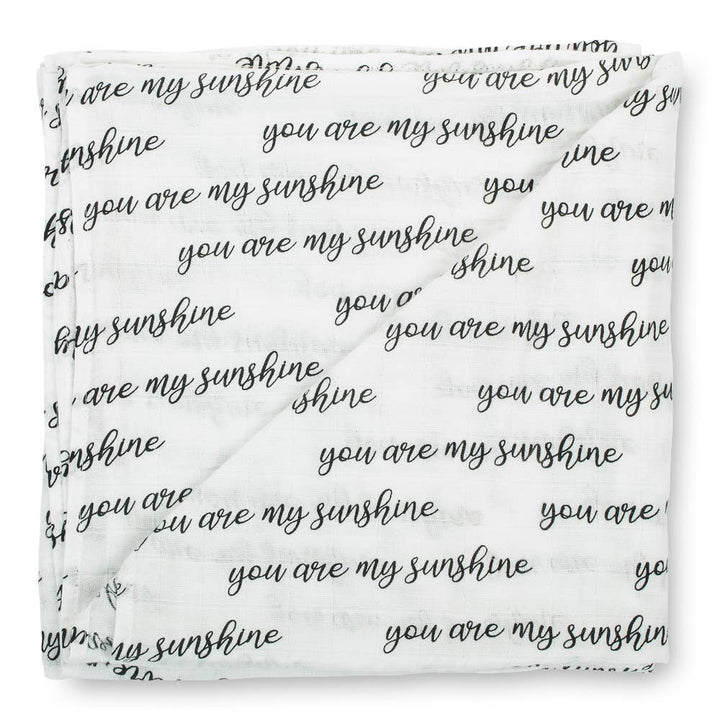 are my sunshine you are my
you are my sunshine
you are my sunshine you
you are m
you are my sunshine
you
my sunshine you
you are my sunshine
are my sunshine
you are my
you are my sunshine
you are
are my sunshine you are
you are my sunshine
my sunshine you are my